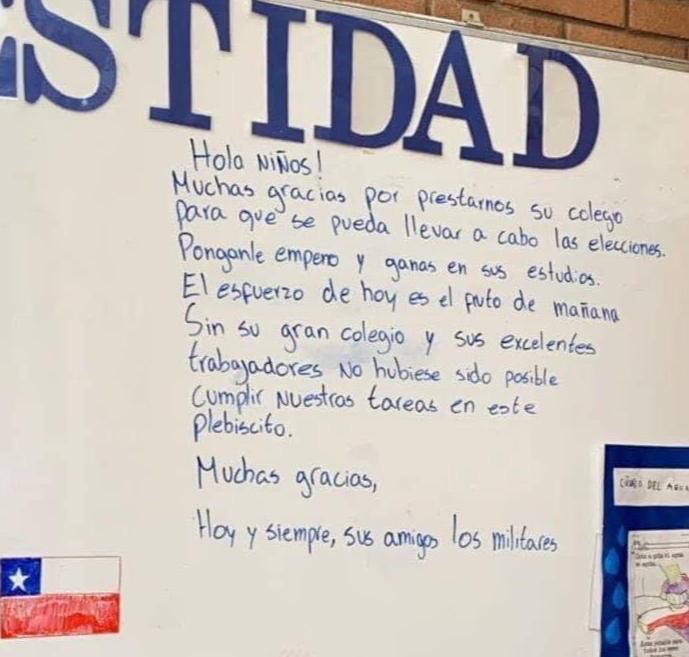 ESTIDAD
Hola Niños!
Muchas gracias por prestarnos su colegio
para que se pueda llevar a cabo las elecciones.
Ponganle empeño y ganas en sus estudios.
El esfuerzo de hoy es el fruto de mañana
Sin su gran colegio y sus excelentes
trabajadores No hubiese sido posible
cumplir Nuestras tareas en este
plebiscito.
Muchas gracias,
Hoy y siempre, sus amigos los militares
DEL AGUA